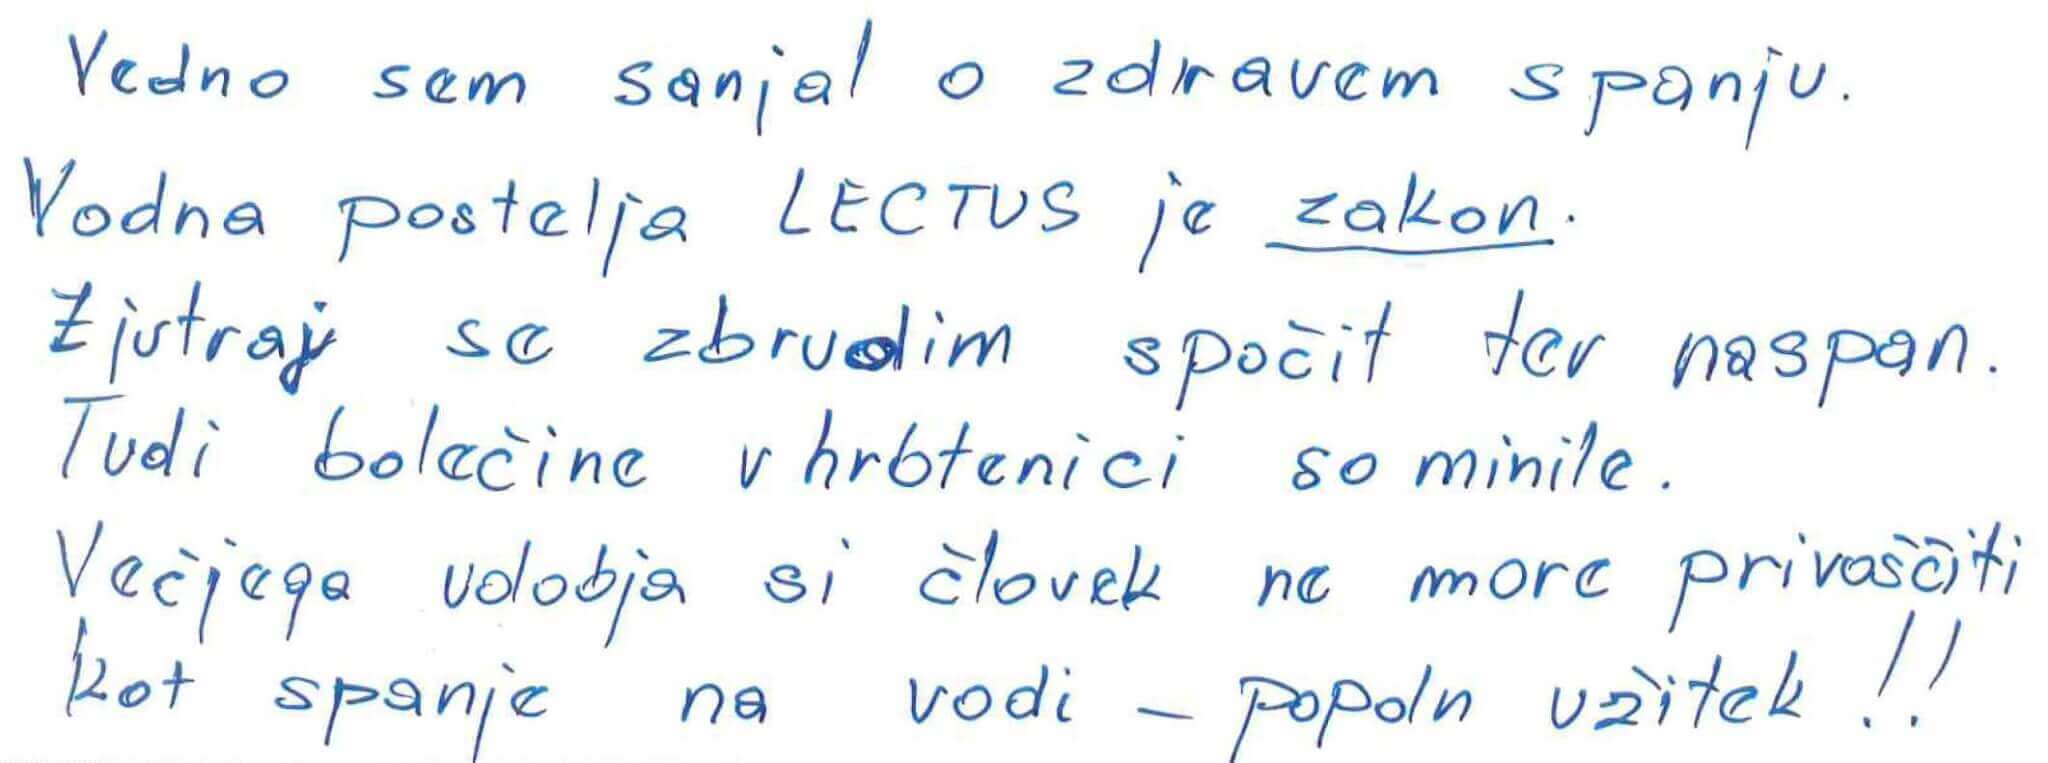 Vedno sem sanjal o zdravem spanju.
Vodna postelja LECTUS je zakon.
Zjutraj se zbrudim spočit ter naspan.
Tudi bolečine v hrbtenici so minile.
Večjega udobja si človek ne more privoščiti
kot spanje na vodi - popoln užitek!!